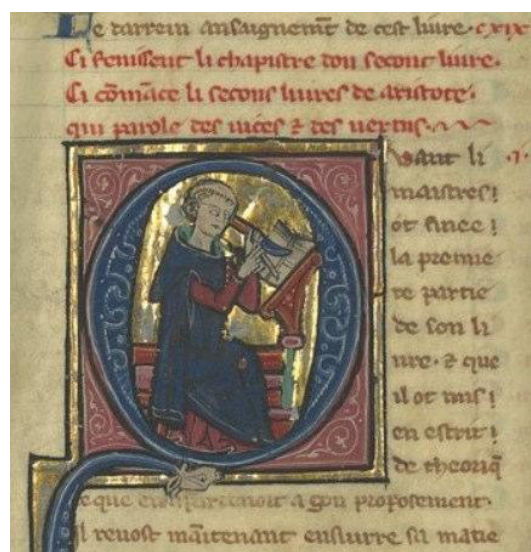 Le darrein ansaignemt de cest liure. cxix
Ci fenissent li chapistre dou secont liure.
Ci cōmāce li secons liures de aristote.
qui parole des uices ⁊ des uertus.
Quant li .I.
maistres
ot finee
la premie
re partie
de son li
ure. ⁊ que
il ot mis
en escrit
de theoriq̄
ce que en apartenoit a son proposement.
Il reuost maītenant ensiurre sa matie